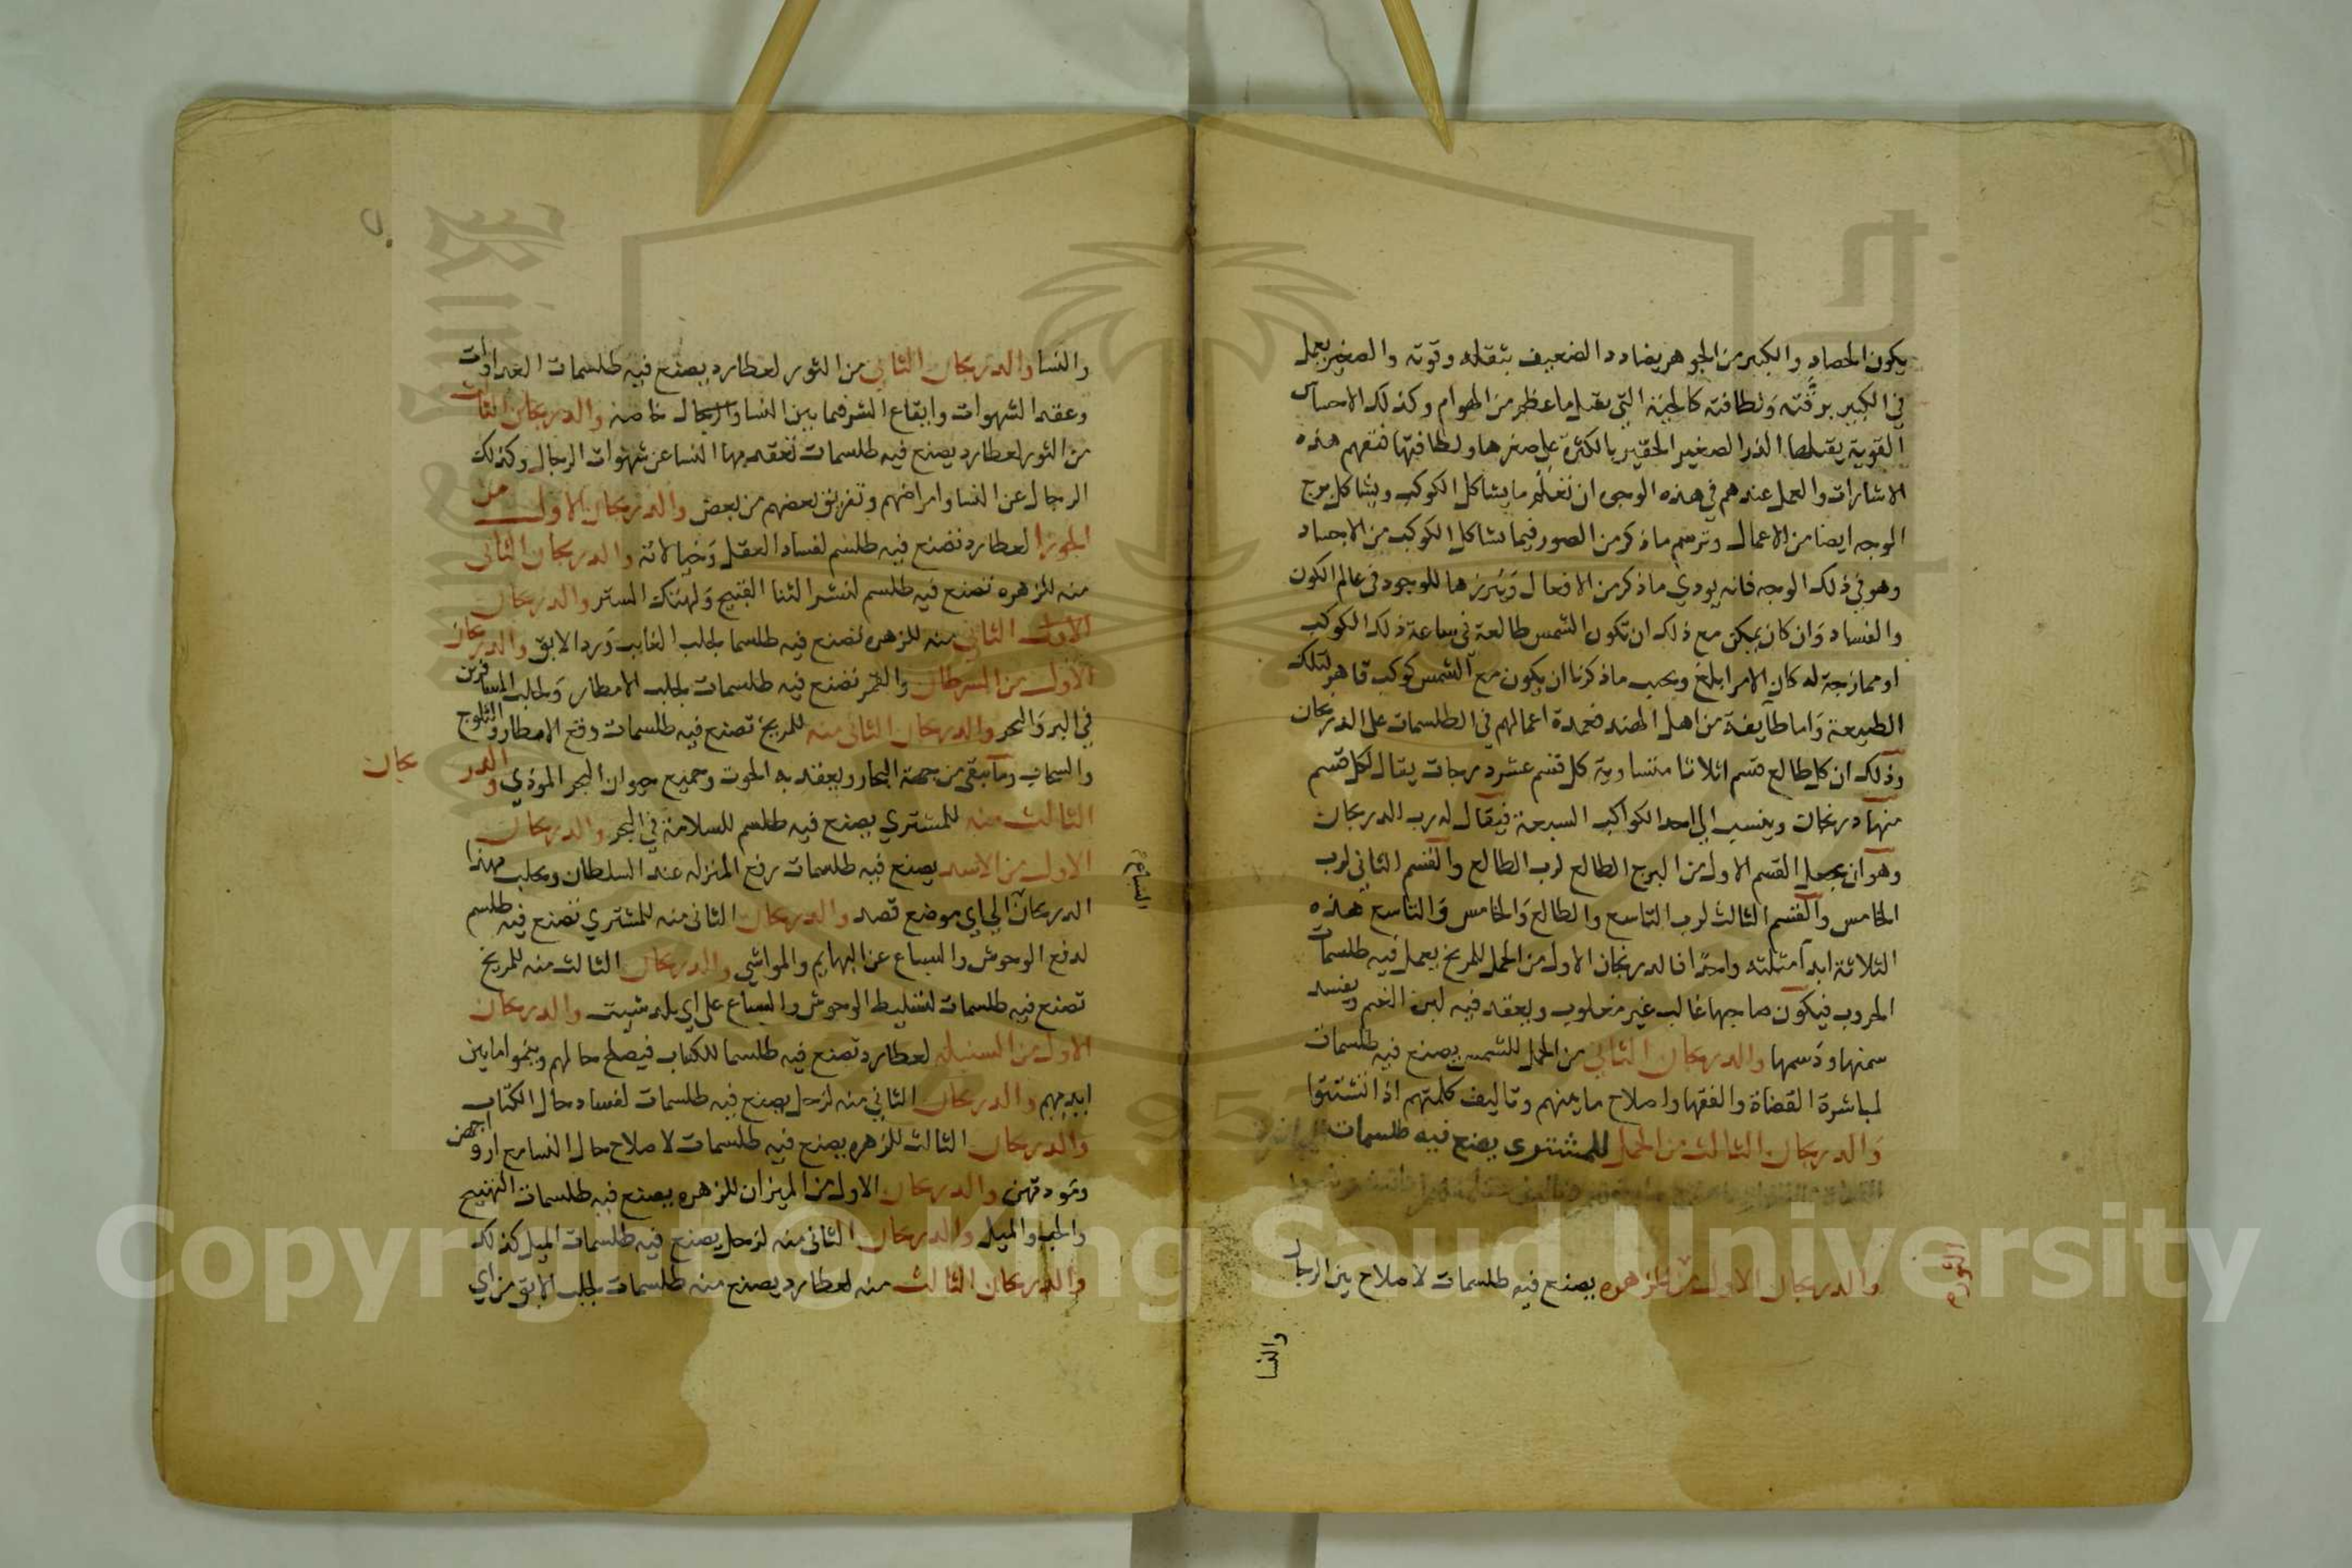 يكون الحصاد والكبير من الجوهر يضادد الضعيف بثقله وقوته والصغير يعمل
في الكبير برقته ولطافته كالحية التي تقتل ما عظم من الهوام وكذلك الاجساد
القوية يقتلها الذر الصغير الحقير بالكثرة على صغرها ولطافتها فتفهم هذه
الاشارات والعمل عندهم في هذه الوجوه ان تعلم ما يشاكل الكوكب ويشاكل برج
الوجه ايضا من الاعمال وترسم ما ذكر من الصور فيما يشاكل الكوكب من الاجساد
وهو في ذلك الوجه فانه يودي ما ذكر من الافعال ويبرزها للوجود في عالم الكون
والفساد وان كان يمكن مع ذلك ان تكون الشمس طالعة في ساعة ذلك الكوكب
او ممازجة له كان الامر ابلغ ويجب ما ذكرنا ان يكون مع الشمس كوكب قاهر لتلك
الطبيعة واما طايفة من اهل الهند فعمدة اعمالهم في الطلسمات على الدريجان
وذلك ان كل طالع قسم اثلاثا متساوية كل قسم عشر درجات يقال لكل قسم
منها دريجان وينسب الى احد الكواكب السبعة فيقال له رب الدريجان
وهو ان يجعل القسم الاول من البرج الطالع لرب الطالع والقسم الثاني لرب
الخامس والقسم الثالث لرب التاسع والطالع والخامس والتاسع هذه
الثلاثة ابدا مثلثه واحدا فالدريجان الاول من الحمل للمريخ يعمل فيه طلسمات
الحروب فيكون صاحبها غالب غير مغلوب ويعقد فيه لبن الغنم ويفسد
سمنها ودسمها والدريجان الثاني من الحمل للشمس يصنع فيه طلسمات
لمباشرة القضاة والفقها واصلاح ما بينهم وتاليف كلمتهم اذا تشتتوا
والدريجان الثالث من الحمل للمشتري يصنع فيه طلسمات
والدريجان الاول من للزهره يصنع فيه طلسمات لاصلاح بين الرجال
الثور
والنسا
والنسا والدريجان الثاني من الثور لعطارد يصنع فيه طلسمات العداوات
وعقد الشهوات وايقاع الشر فيما بين النسا والرجال خاصه والدريجان الثالث
من الثور لعطارد يصنع فيه طلسمات تعقد بها النسا عن شهوات الرجال وكذلك
الرجال عن النسا وامراضهم وتفريق بعضهم من بعض والدريجان الاول من
الجوزا لعطارد تصنع فيه طلسم لفساد العقل وخيالاته والدريجان الثاني
منه للزهره تصنع فيه طلسم لنشر الثنا القبيح ولهتك الستر والدريجان
الاول الثاني منه للزهره تصنع فيه طلسما لجلب الغايب ورد الابق والدريجان
الاول من السرطان والقمر تصنع فيه طلسمات لجلب الامطار ولجلب المسافرين
في البر والبحر والدريجان الثاني منه للمريخ تصنع فيه طلسمات دفع الامطار والثلوج
والسمايم وما يبقى من جهة البحار ويعقد به الحوت وجميع حيوان البحر الموذي والدريجان
الثالث منه للمشتري يصنع فيه طلسم للسلامة في البحر والدريجان
الاول من الاسد يصنع فيه طلسمات رفع المنزله عند السلطان ويجلب بهذا
الدريجان الى اي موضع قصد والدريجان الثاني منه للمشتري تصنع فيه طلسم
السباع
لدفع الوحوش والسباع عن البهايم والمواشي والدريجان الثالث منه للمريخ
تصنع فيه طلسمات لتسليط الوحوش والسباع على اي بلد شيت والدريجان
الاول من السنبله لعطارد تصنع فيه طلسما للكتاب فيصلح حالهم وينموا ما بين
ايديهم والدريجان الثاني منه لزحل يصنع فيه طلسمات لفساد حال الكتاب
والدريجان الثالث للزهره يصنع فيه طلسمات لاصلاح حال النسا مع ازواجهن
ومودتهن والدريجان الاول من الميزان للزهره يصنع فيه طلسمات التهييج
والحب والميل والدريجان الثاني منه لزحل يصنع فيه طلسمات الميل كذلك
والدريجان الثالث منه لعطارد يصنع منه طلسمات لجلب الابق من اي
Copyright © King Saud University